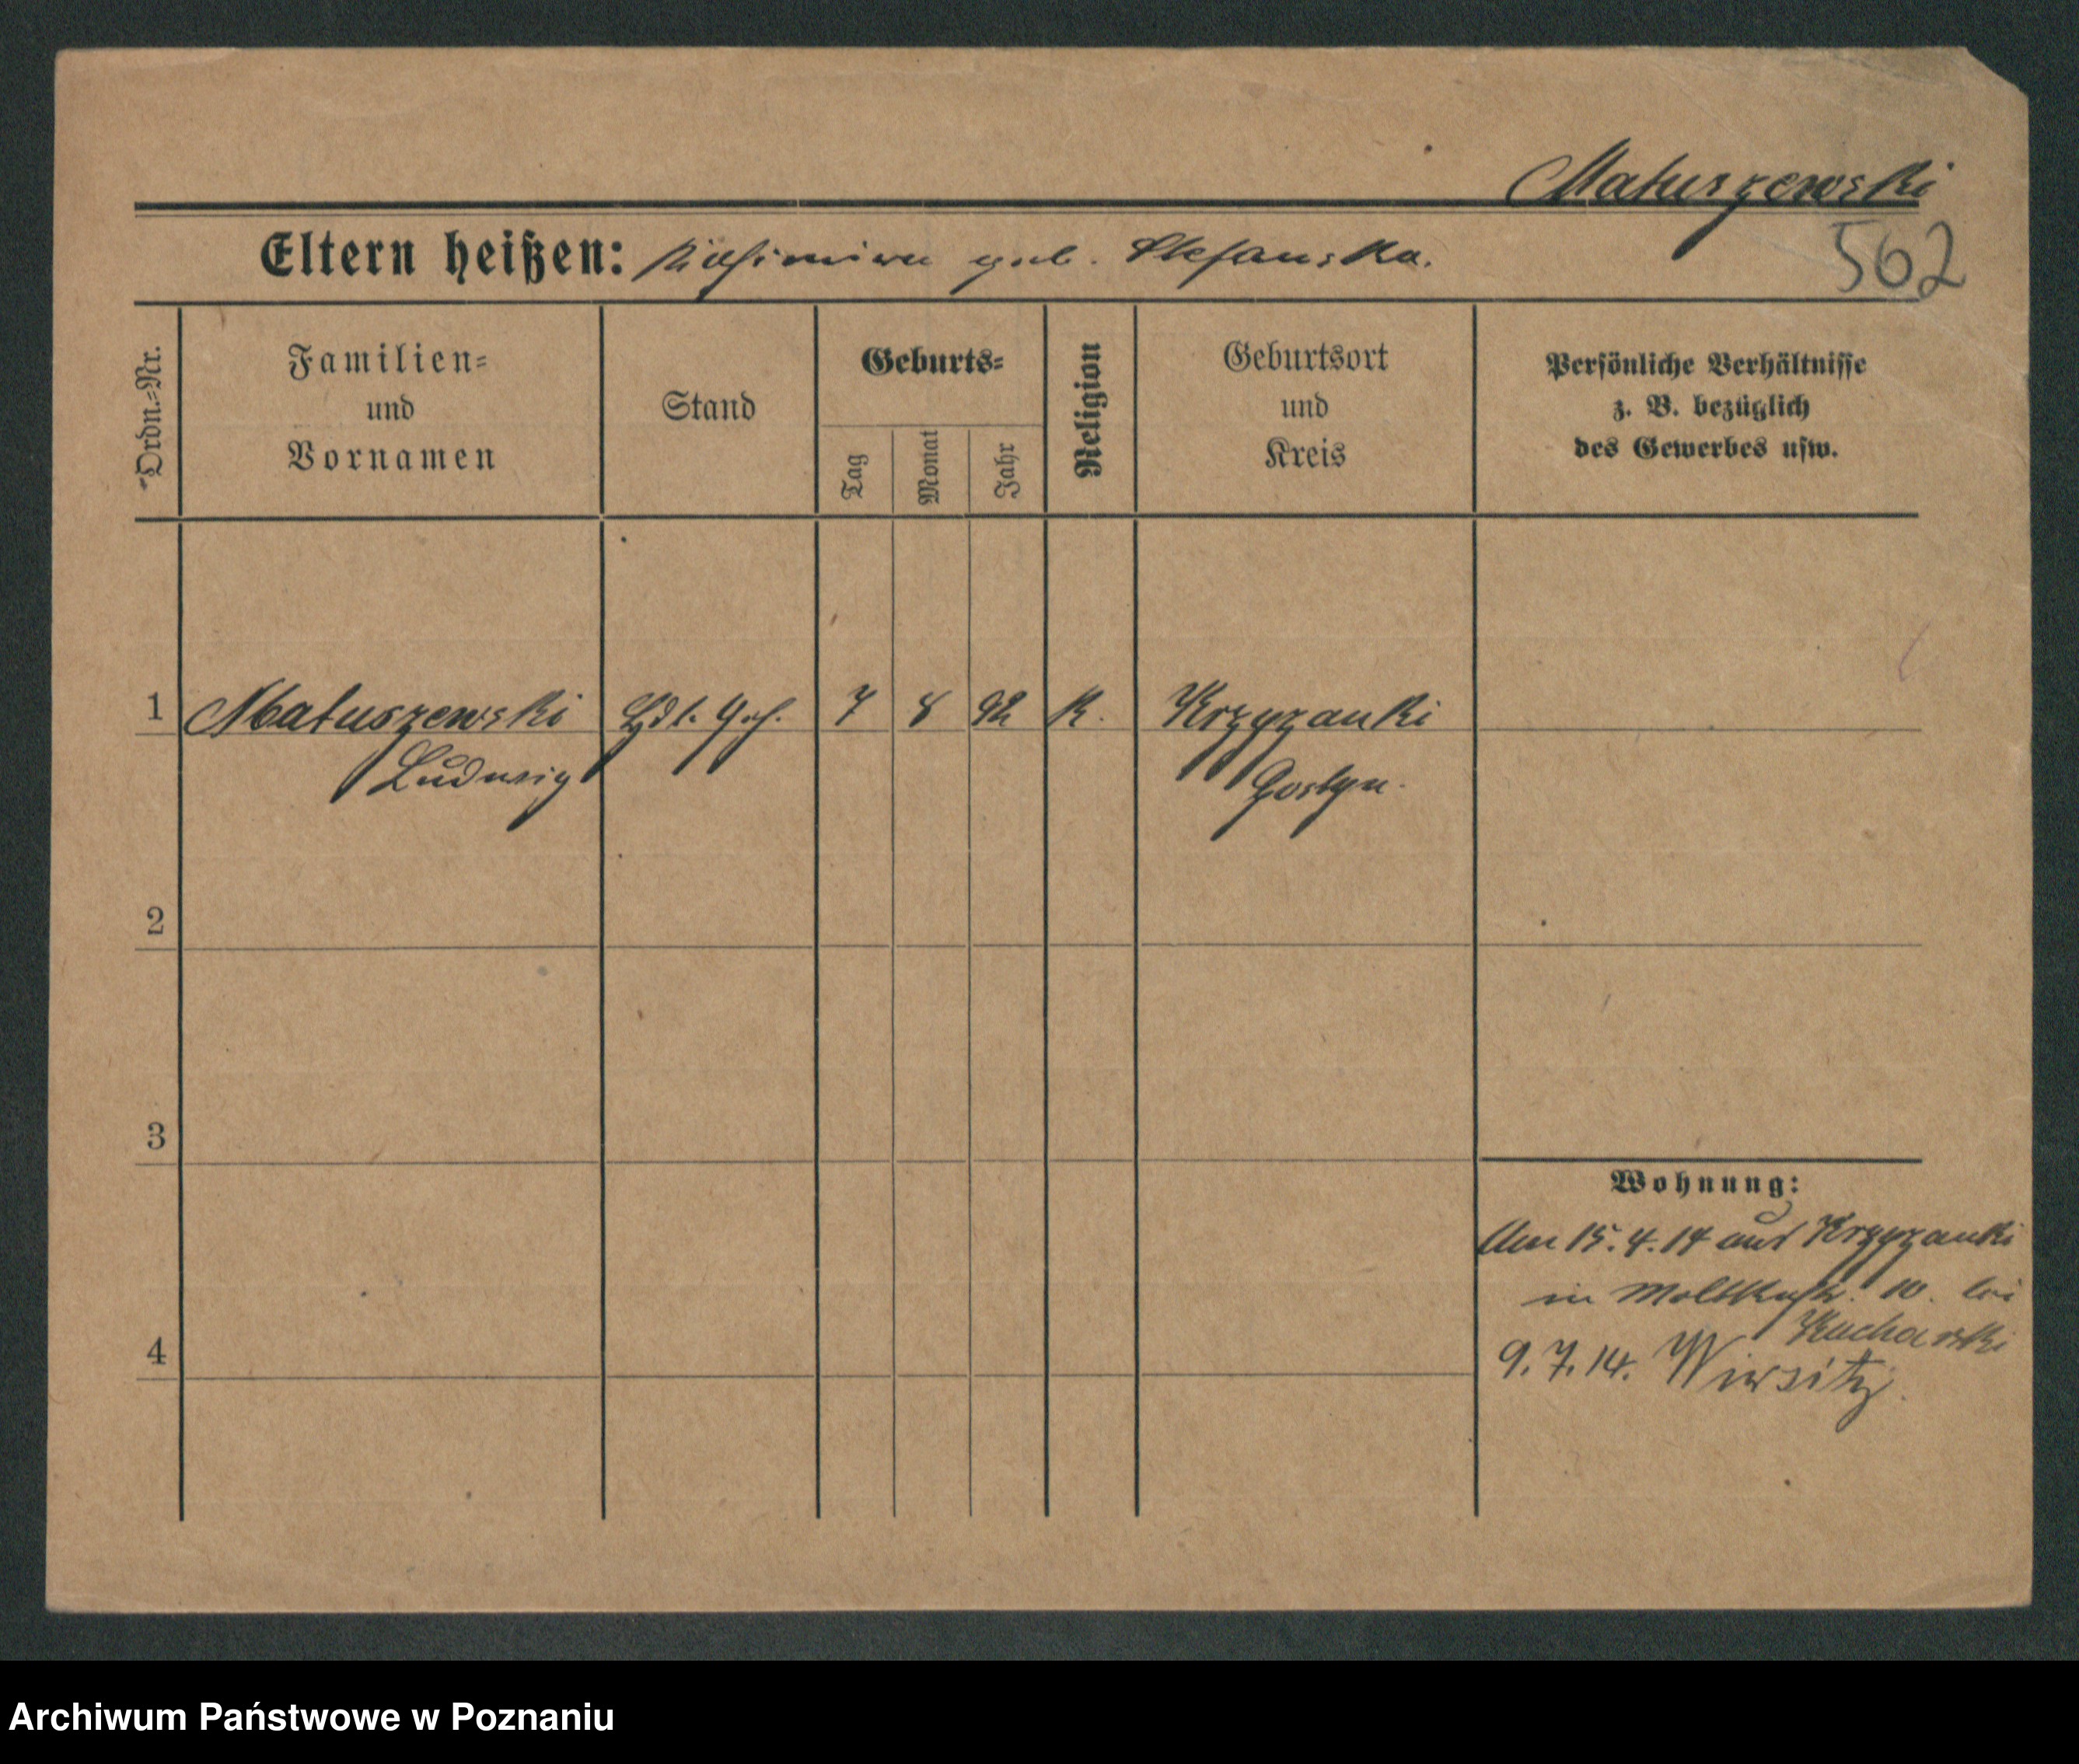 Matuszewski
562
Eltern heißen: geb. Stefanska.
Ordn.-Nr.
Familien-
und
Vornamen
Stand
Geburts-
Tag
Monat
Jahr
Religion
Geburtsort
und
Kreis
Persönliche Verhältnisse
z. B. bezüglich
des Gewerbes usw.
1 Matuszewski 7 8 92 K. Krzyzanki
Ludwig Gostyn.
2
3
4
Wohnung:
Am 15.4.14 aus Krzyzanki
in Moltkestr. 10. bei
Kucharski
9.7.14. Wirsitz.
Archiwum Państwowe w Poznaniu